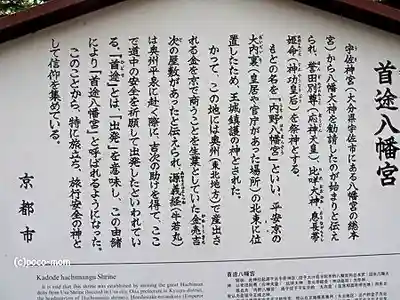 首途八幡宮
宇佐神宮(大分県宇佐市にある八幡宮の総本
宮)から八幡大神を勧請したのが始まりと伝え
られ、誉田別尊(応神天皇)、比咩大神、息長帯
姫命(神功皇后)を祭神とする。
もとの名を「内野八幡宮」といい、平安京の
大内裏(皇居や官庁があった場所)の北東に位
置したため、王城鎮護の神とされた。
かつて、この地には奥州(東北地方)で産出さ
れる金を京で商うことを生業としていた金売吉
次の屋敷があったと伝えられ、源義経(牛若丸)
は奥州平泉に赴く際に、吉次の助けを得て、ここ
で道中の安全を祈願して出発したといわれてい
る。「首途」とは、「出発」を意味し、この由緒
により「首途八幡宮」と呼ばれるようになった。
このことから、特に旅立ち、旅行安全の神と
して信仰を集めている。
京都市
Kadode hachimangu Shrine
It is said that this shrine was established by moving the great Hachiman
from Usa Shrine
首途八幡宮
(c)poco-mom